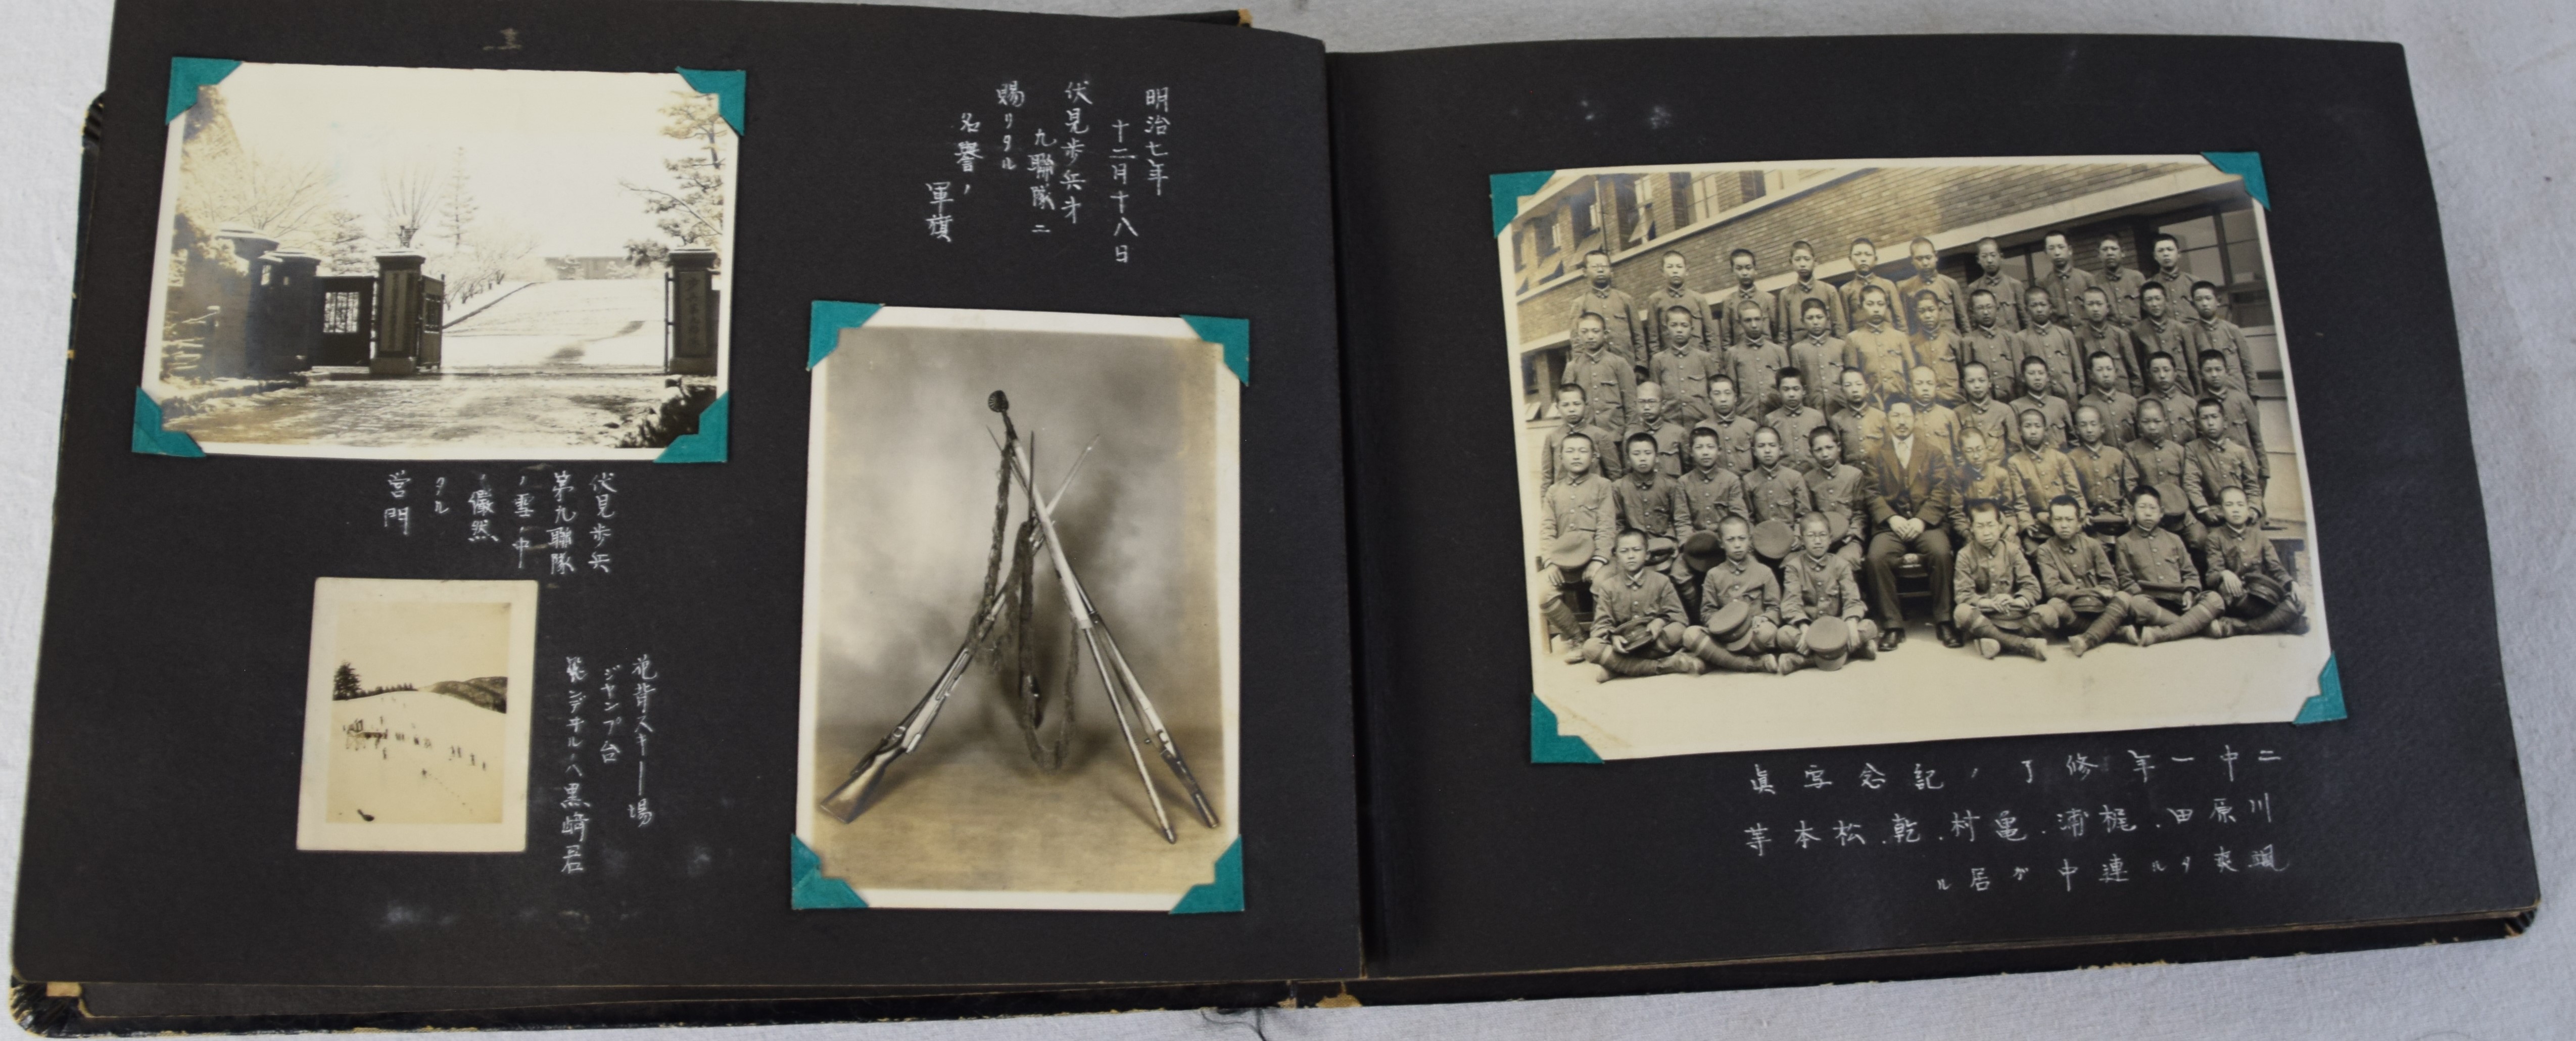 明治七年
十二月十八日
伏見歩兵才
九聯隊ニ
賜リタル
名誉ノ
軍旗
伏見歩兵
第九聯隊
ノ雪ノ中
ノ儼然
タル
営門
花背スキー場
ジャンプ台
飛ンデヰルノヘ黒崎君
二中一年修了ノ記念写眞
川原田.梶浦.亀村.乾.松本等
颯爽タル連中ガ居ル